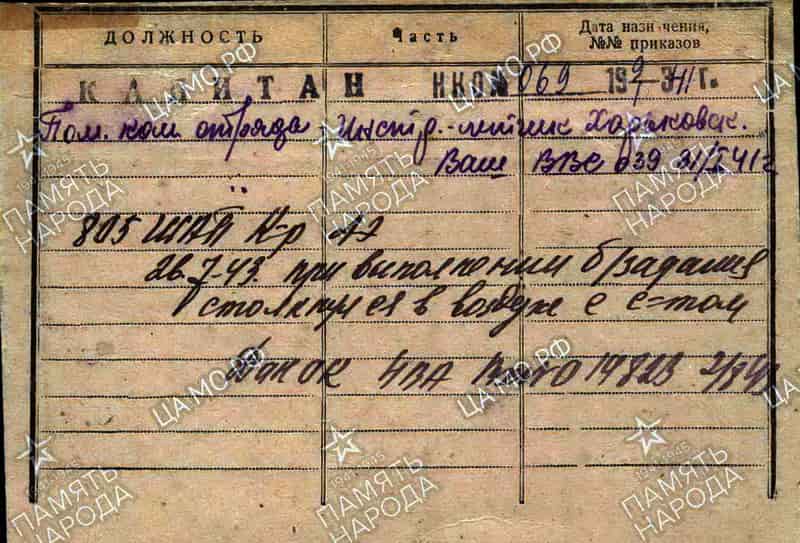 ДОЛЖНОСТЬ Часть Дата назначения, №№ приказов
КАПИТАН НКО № 069 19 г.
Пом. ком. отряда Инстр.-летчик Харьковск.
Ваш ВВС 039 21/I 41 г
"
805 ШАП К-р АЭ
26.7-43. при выполнении б/задания
столкнулся в воздухе с с-том
4ВА 19823
ЦАМО.РФ
ПАМЯТЬ НАРОДА
1941-1945